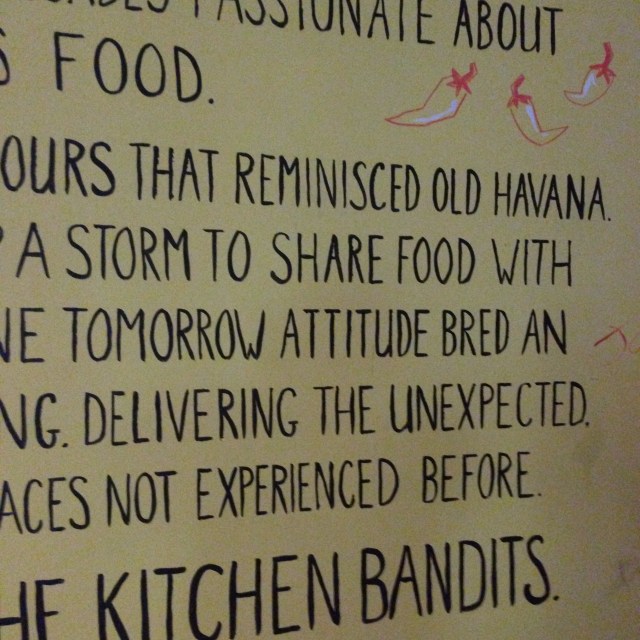 PASSIONATE ABOUT
FOOD.
OURS THAT REMINISCED OLD HAVANA.
A STORM TO SHARE FOOD WITH
NE TOMORROW ATTITUDE BRED AN
NG. DELIVERING THE UNEXPECTED.
ACES NOT EXPERIENCED BEFORE.
HE KITCHEN BANDITS.